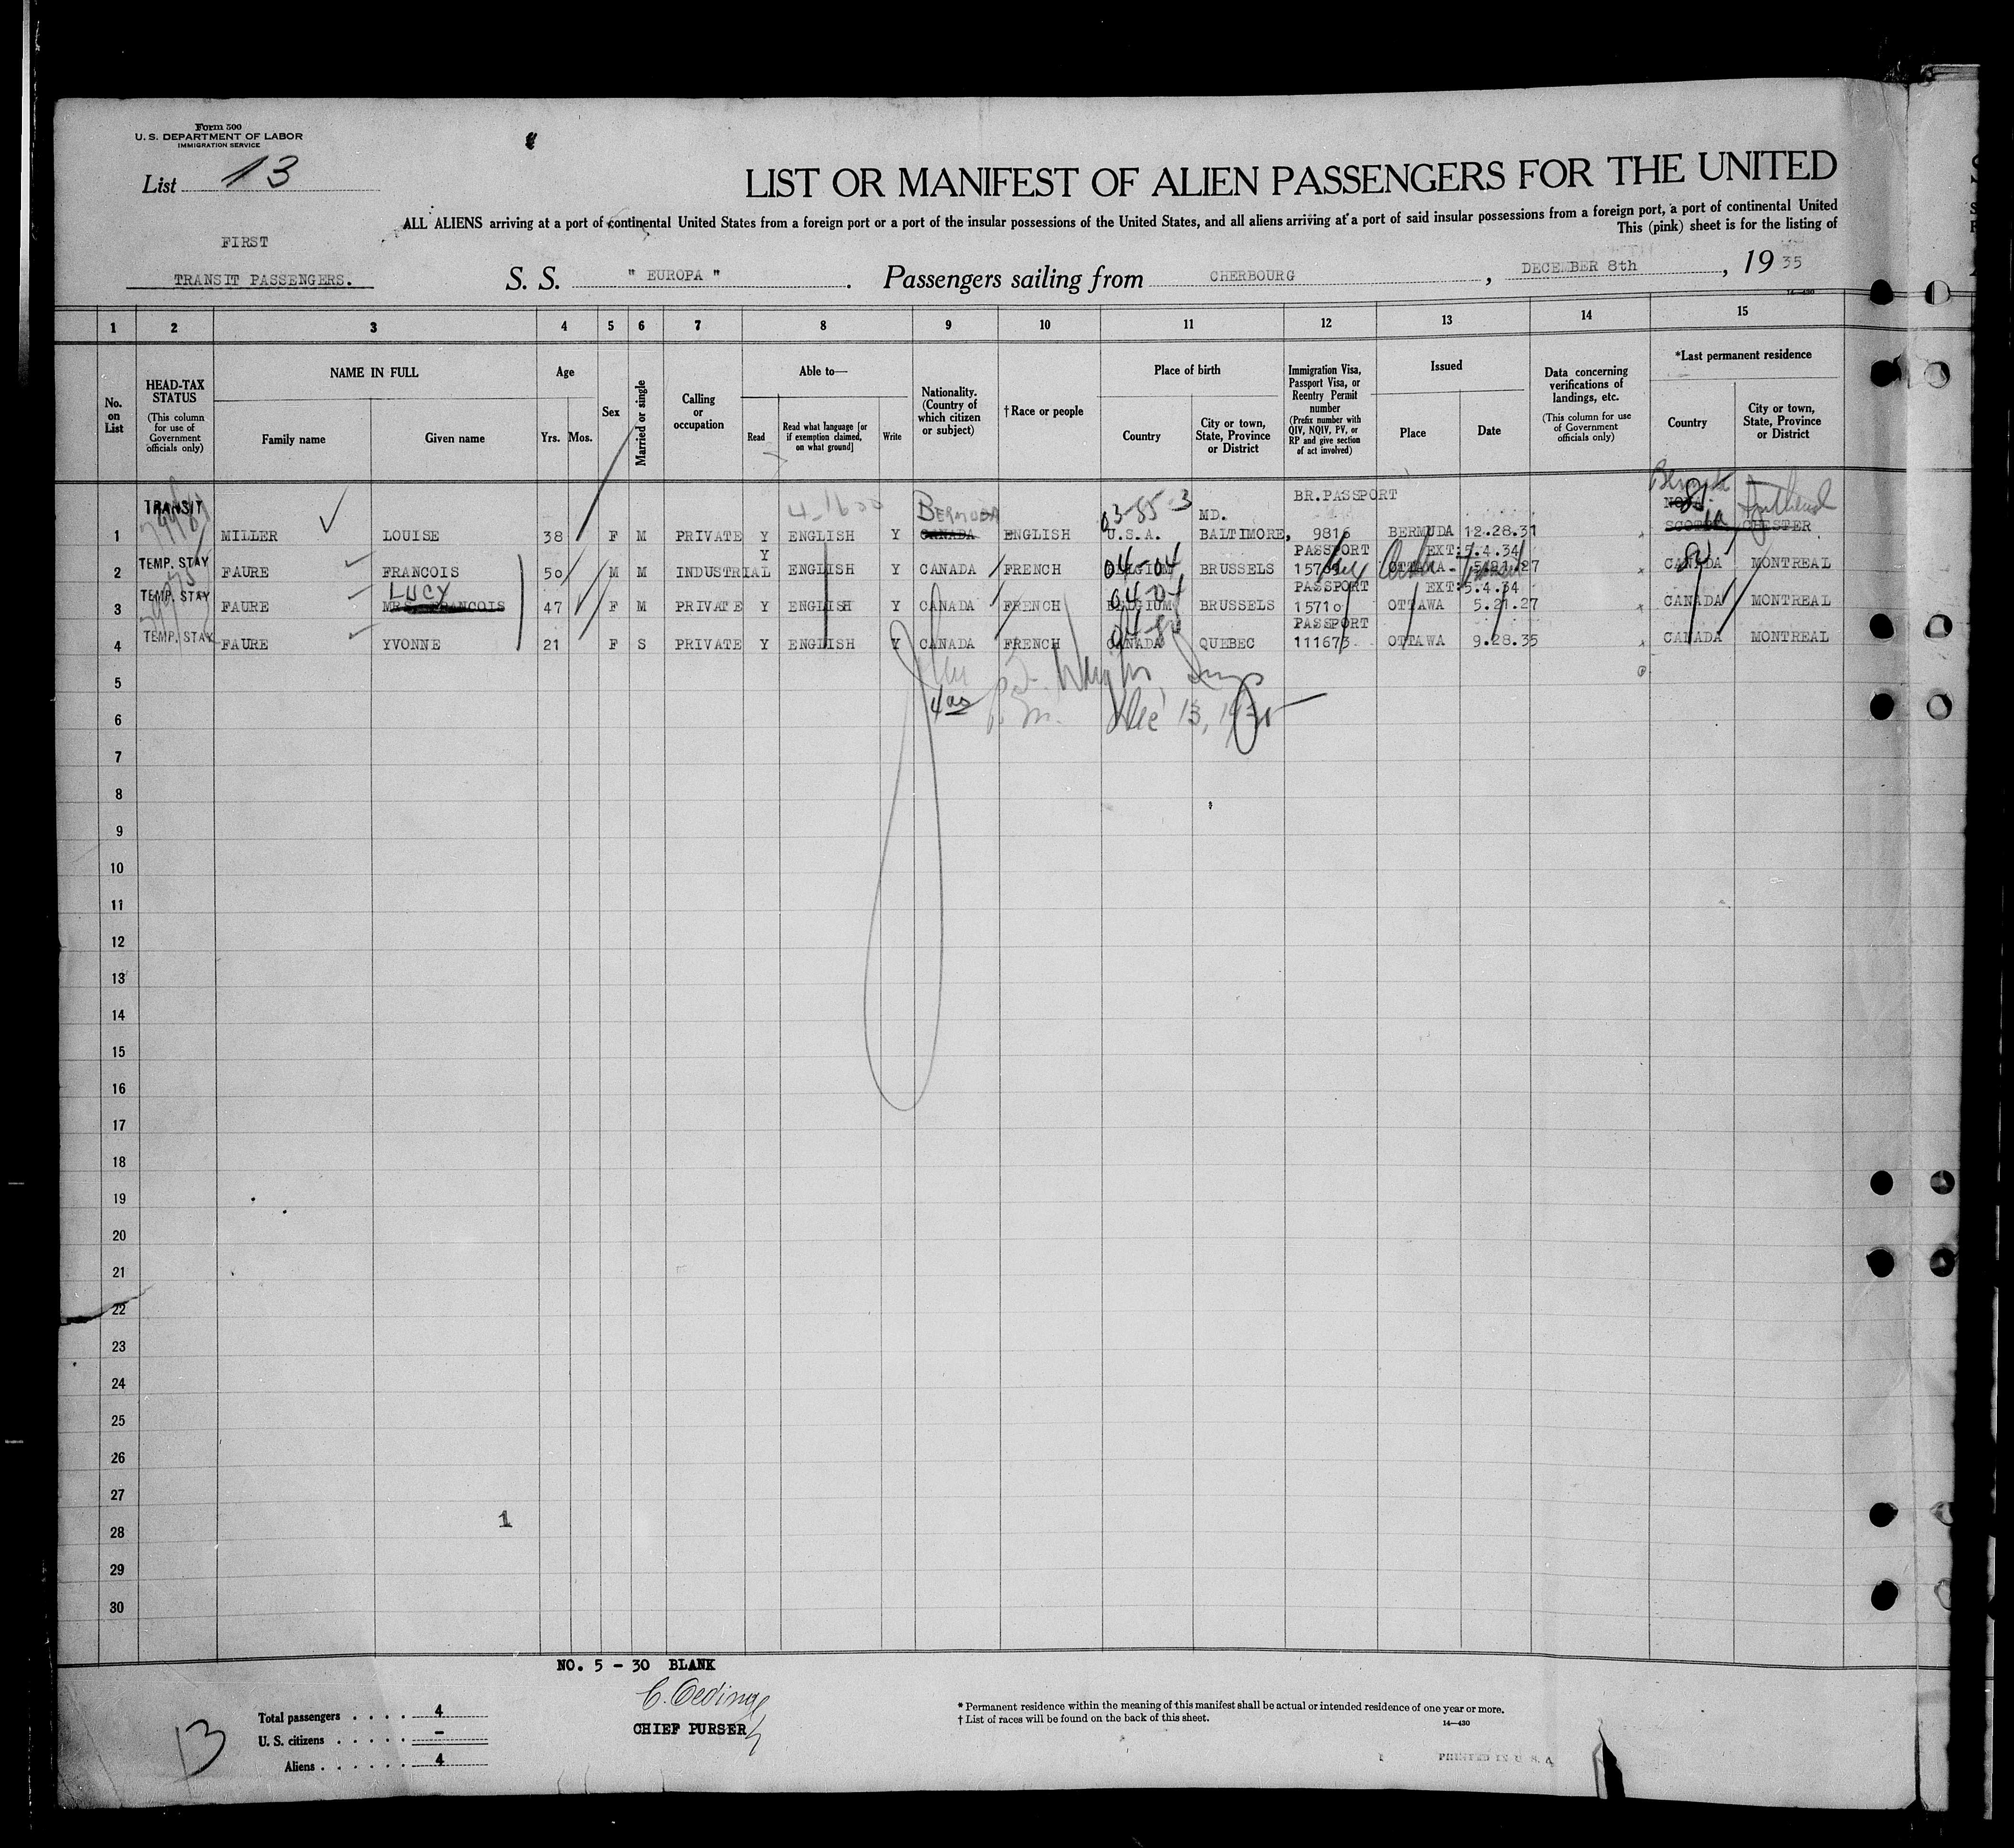 Form 500
U. S. DEPARTMENT OF LABOR
IMMIGRATION SERVICE
List 13
LIST OR MANIFEST OF ALIEN PASSENGERS FOR THE UNITED
ALL ALIENS arriving at a port of continental United States from a foreign port or a port of the insular possessions of the United States, and all aliens arriving at a port of said insular possessions from a foreign port, a port of continental United
This (pink) sheet is for the listing of
FIRST
TRANSIT PASSENGERS.
S. S. " EUROPA " . Passengers sailing from CHERBOURG , DECEMBER 8th , 19 35
14—430
1 2 3 4 5 6 7 8 9 10 11 12 13 14 15
No. on List
HEAD-TAX STATUS
(This column for use of Government officials only)
NAME IN FULL
Family name Given name
Age
Yrs. Mos.
Sex
Married or single
Calling or occupation
Able to—
Read
Read what language [or if exemption claimed, on what ground]
Write
Nationality. (Country of which citizen or subject)
†Race or people
Place of birth
Country
City or town, State, Province or District
Immigration Visa, Passport Visa, or Reentry Permit number
(Prefix number with QIV, NQIV, PV, or RP and give section of act involved)
Issued
Place Date
Data concerning verifications of landings, etc.
(This column for use of Government officials only)
*Last permanent residence
Country
City or town, State, Province or District
TRANSIT 4-1600 BERMUDA 03-85-3 MD. BR.PASSPORT
1 MILLER LOUISE 38 F M PRIVATE Y ENGLISH Y CANADA ENGLISH U.S.A. BALTIMORE, 9816 BERMUDA 12.28.31 SCOTIA CHESTER
TEMP. STAY Y PASSPORT EXT:5.4.34
2 FAURE FRANCOIS 50 M M INDUSTRIAL ENGLISH Y CANADA FRENCH 04-04 BELGIUM BRUSSELS OTTAWA 5.21.27 CANADA MONTREAL
TEMP. STAY LUCY 04-04 PASSPORT EXT:5.4.34
3 FAURE MRS. FRANCOIS 47 F M PRIVATE Y ENGLISH Y CANADA FRENCH BELGIUM BRUSSELS 15710 OTTAWA 5.21.27 CANADA MONTREAL
TEMP. STAY PASSPORT
4 FAURE YVONNE 21 F S PRIVATE Y ENGLISH Y CANADA FRENCH CANADA QUEBEC 111673 OTTAWA 9.28.35 CANADA MONTREAL
5
6 Dec 13, 1935
7
8
9
10
11
12
13
14
15
16
17
18
19
20
21
22
23
24
25
26
27
28 1
29
30
NO. 5 - 30 BLANK
CHIEF PURSER
13
Total passengers . . . . 4
U. S. citizens . . . . . –
Aliens . . . . . . 4
* Permanent residence within the meaning of this manifest shall be actual or intended residence of one year or more.
† List of races will be found on the back of this sheet.
14—430
PRINTED IN U. S. A.